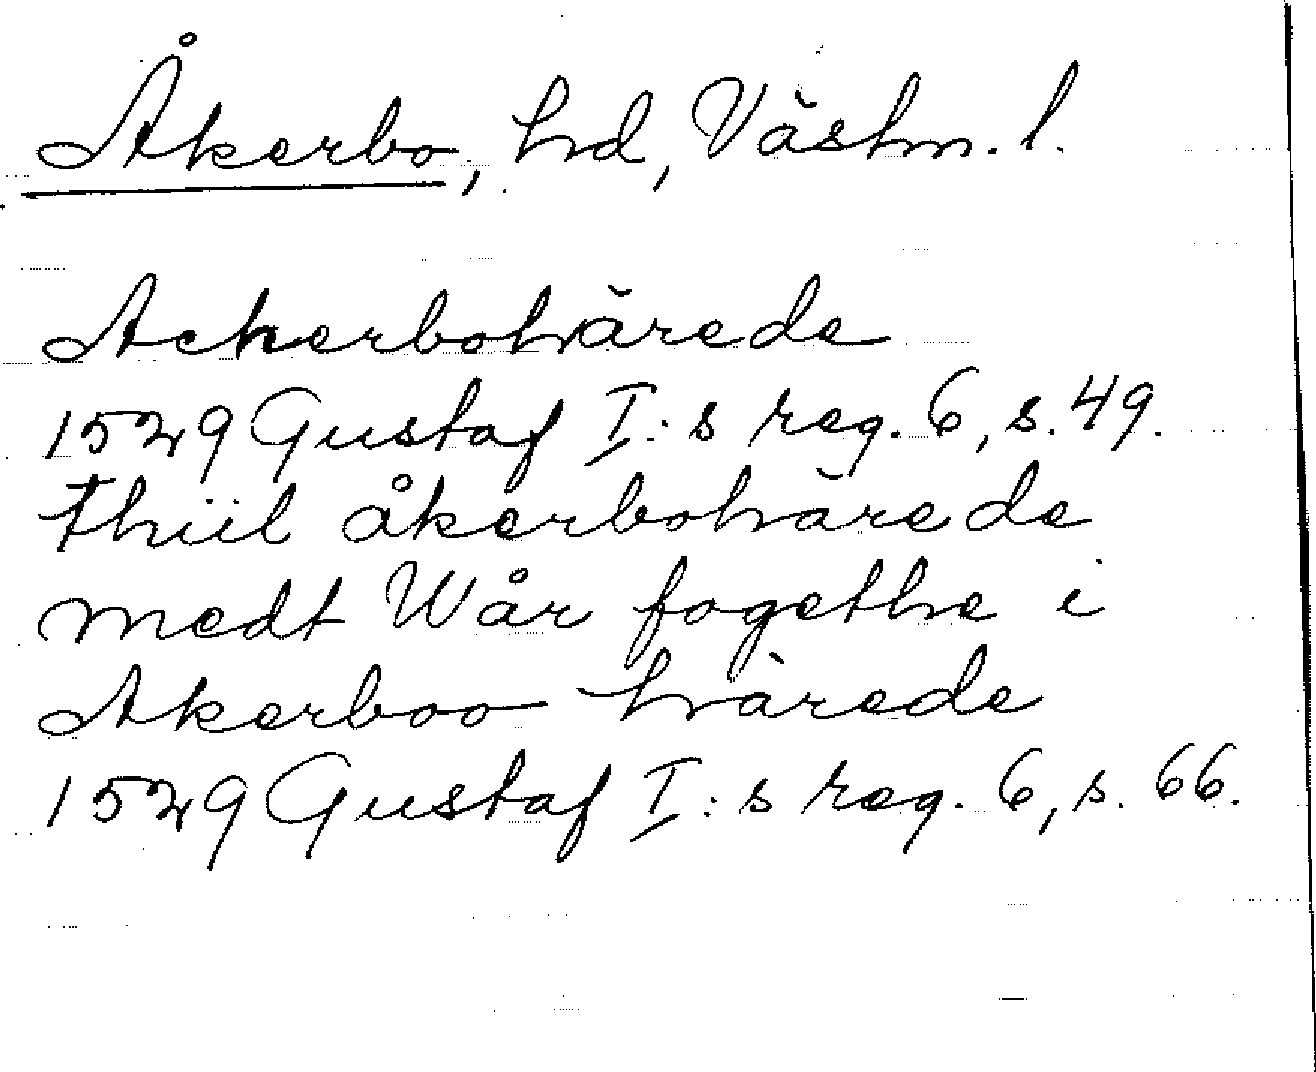 Åkerbo, hd, Västm. l.
Ackerbohärede
1529 Gustaf I:s reg. 6, s. 49.
thiil åkerbohärede
medt Wår fogethe i
Akerboo härede
1529 Gustaf I:s reg. 6, s. 66.